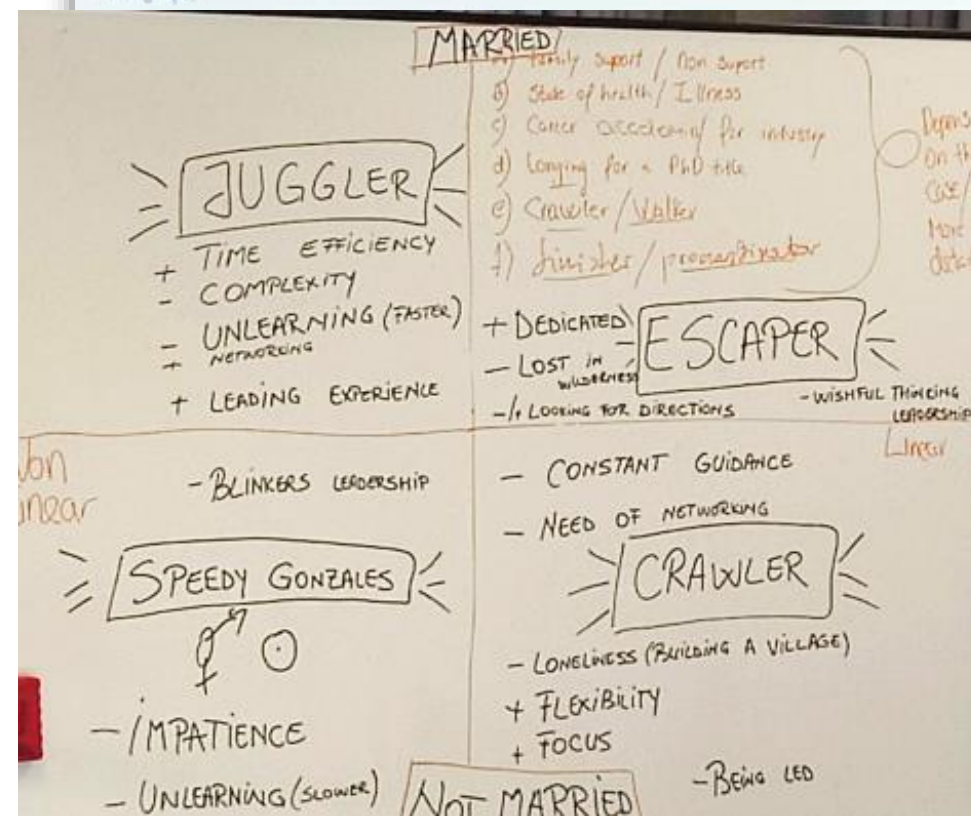 MARRIED
a) Family Suport / Non Suport
b) State of health / Illness
c) for industry
d) Longing for a PhD title
e) Crawler / Walker
f) finisher / procrastinator
Depens
On th
Case /
More
JUGGLER
+ TIME EFFICIENCY
- COMPLEXITY
- UNLEARNING (FASTER)
+ NETWORKING
+ LEADING EXPERIENCE
+ DEDICATED
- LOST IN WILDERNESS
-/+ LOOKING FOR DIRECTIONS
ESCAPER
- WISHFUL THINKING
LEADERSHIP
Non
inear
Linear
- BLINKERS LEADERSHIP
SPEEDY GONZALES
- IMPATIENCE
- UNLEARNING (SLOWER)
- CONSTANT GUIDANCE
- NEED OF NETWORKING
CRAWLER
- LONELINESS (BUILDING A VILLAGE)
+ FLEXIBILITY
+ FOCUS
- BEING LED
NOT MARRIED